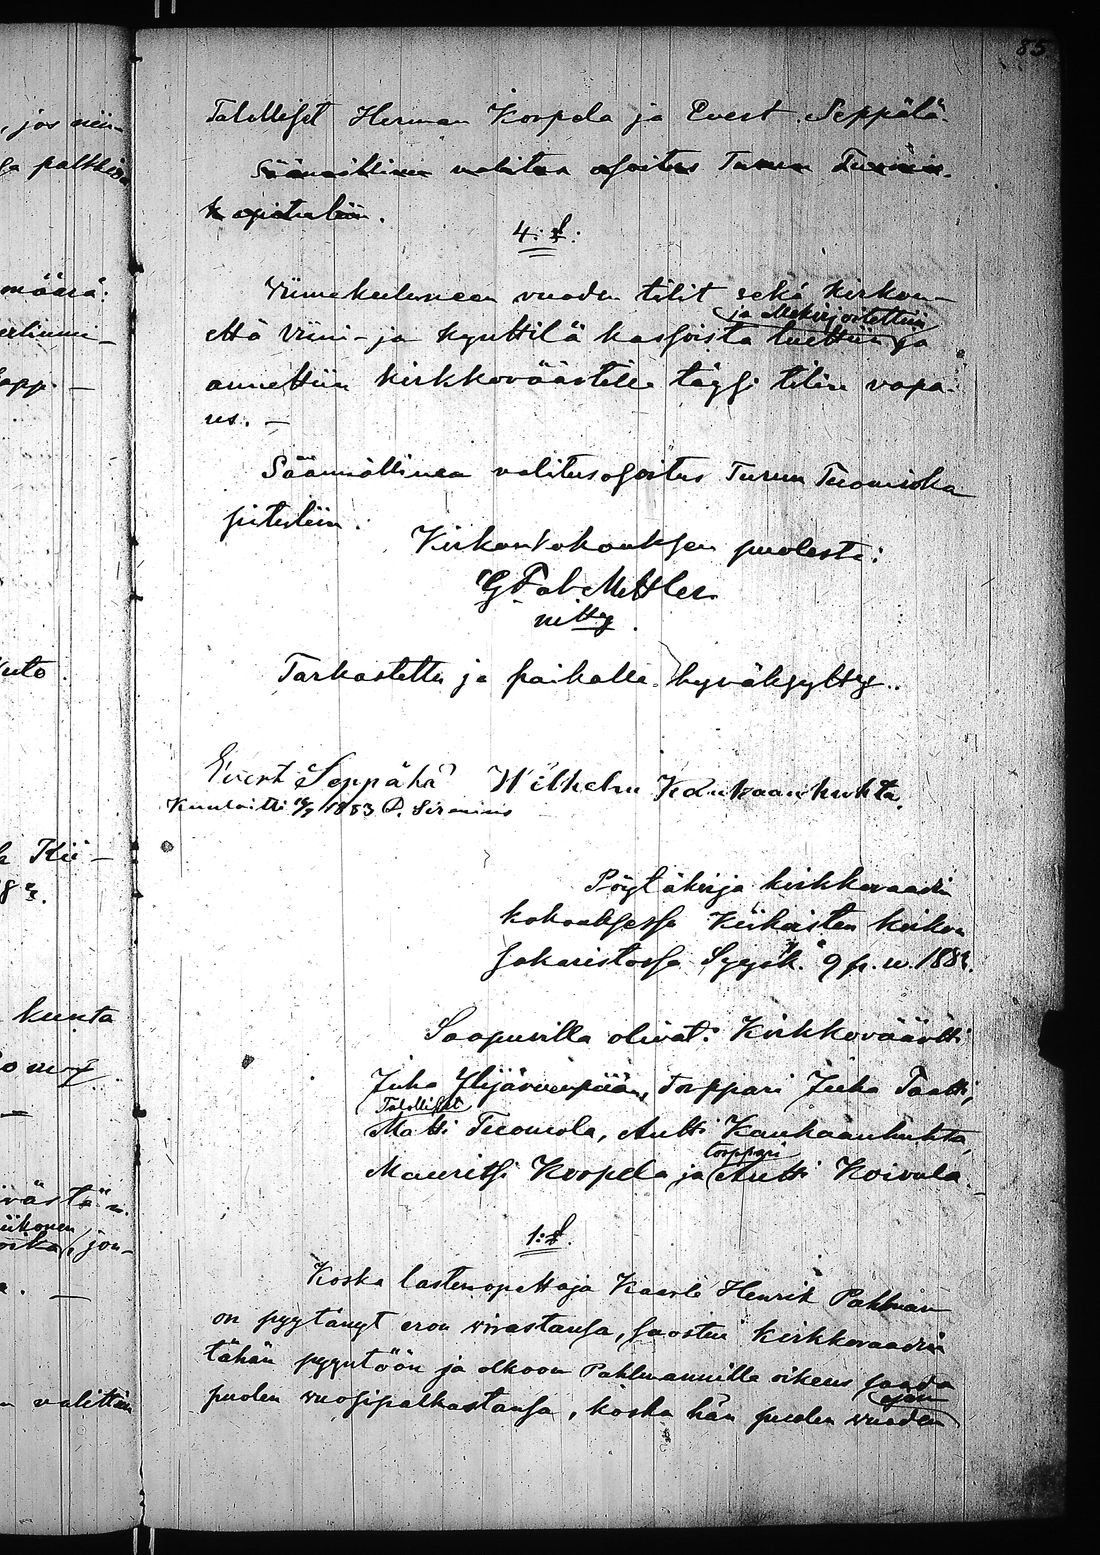 85
, jos niin-
ja palkkion
määrä:
Kii-
kunta
iikonen
jon-
valittiin
Talolliset Herman Korpela ja Evert Seppälä.
Säännöllinen valitus osoitus Turun Tuomio-
kapituliin.
4: §:
Viimekuluneen vuoden tilit sekä kirkon-
ja Allekirjoitettiin
että viini- ja kynttilä kassoista luettiin ja
annettiin kirkkoväärtille täysi tilin vapa-
us. -
Säännöllinen valitusosoitus Turun Tuomioka
pituliin.
Kirkonkokouksen puolesta:
G Fab. Mettler
nitty.
Tarkastettu ja paikalla hyväksytty.
Evert Seppälä Wilhelm Kaukaanhuhta.
Kuulutti 1883 P. Sirenius
Pöytäkirja kirkkoraadin
kokouksessa Kiikoisten kirkon
Sakaristossa Syysk. 9 p. w. 1883.
Saapuvilla olivat: Kirkkoväärtti
Juha Ylijärvenpään, torppari Juha Taatti,
Talolliset
Matti Tuomola, Antti Kaukaanhuhta,
torppari
Mauritsi Korpela ja Antti Koivula.
1: §.
Koska lastenopettaja Kaarle Henrik Pahlman
on pyytänyt eron virastansa, suostui kirkkoraadin
tähän pyyntöön ja olkoon Pahlmannilla oikeus saada
ajan
puolen vuosipalkastansa, koska hän puolen vuoden